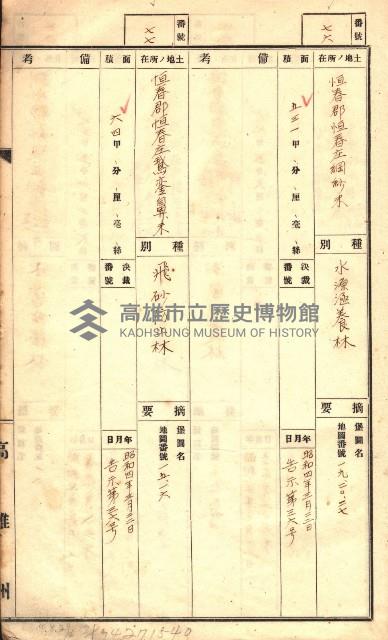 番號
七六
土地ノ所在
恒春郡恒春庄網紗木
種別
水源涵養林
摘要
堡圖名
地圖番號 一九、二〇、二七
面積
五三一甲、分、厘、毫、絲
決裁番號
年月日
昭和四年
告示第三六号
備考
番號
七七
土地ノ所在
恒春郡恒春庄鵞鑾鼻木
種別
飛砂防止林
摘要
堡圖名
地圖番號 一五、一六
面積
六四甲、分、厘、毫、絲
決裁番號
年月日
昭和四年
告示第三六号
備考
高雄州
高雄市立歷史博物館
KAOHSIUNG MUSEUM OF HISTORY